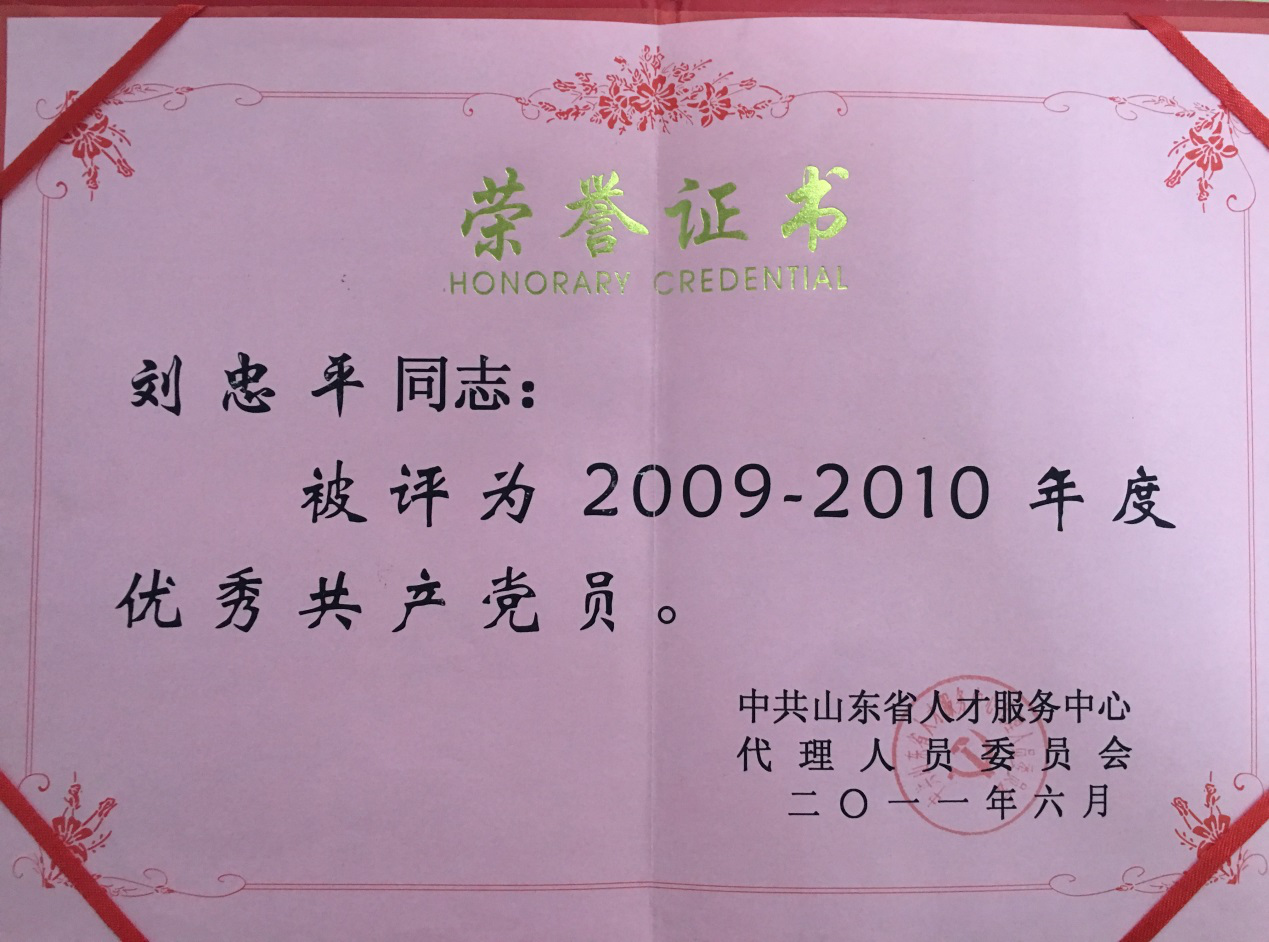 荣誉证书
HONORARY CREDENTIAL
刘忠平同志：
被评为 2009-2010 年度
优秀共产党员。
中共山东省人才服务中心
代理人员委员会
二〇一一年六月